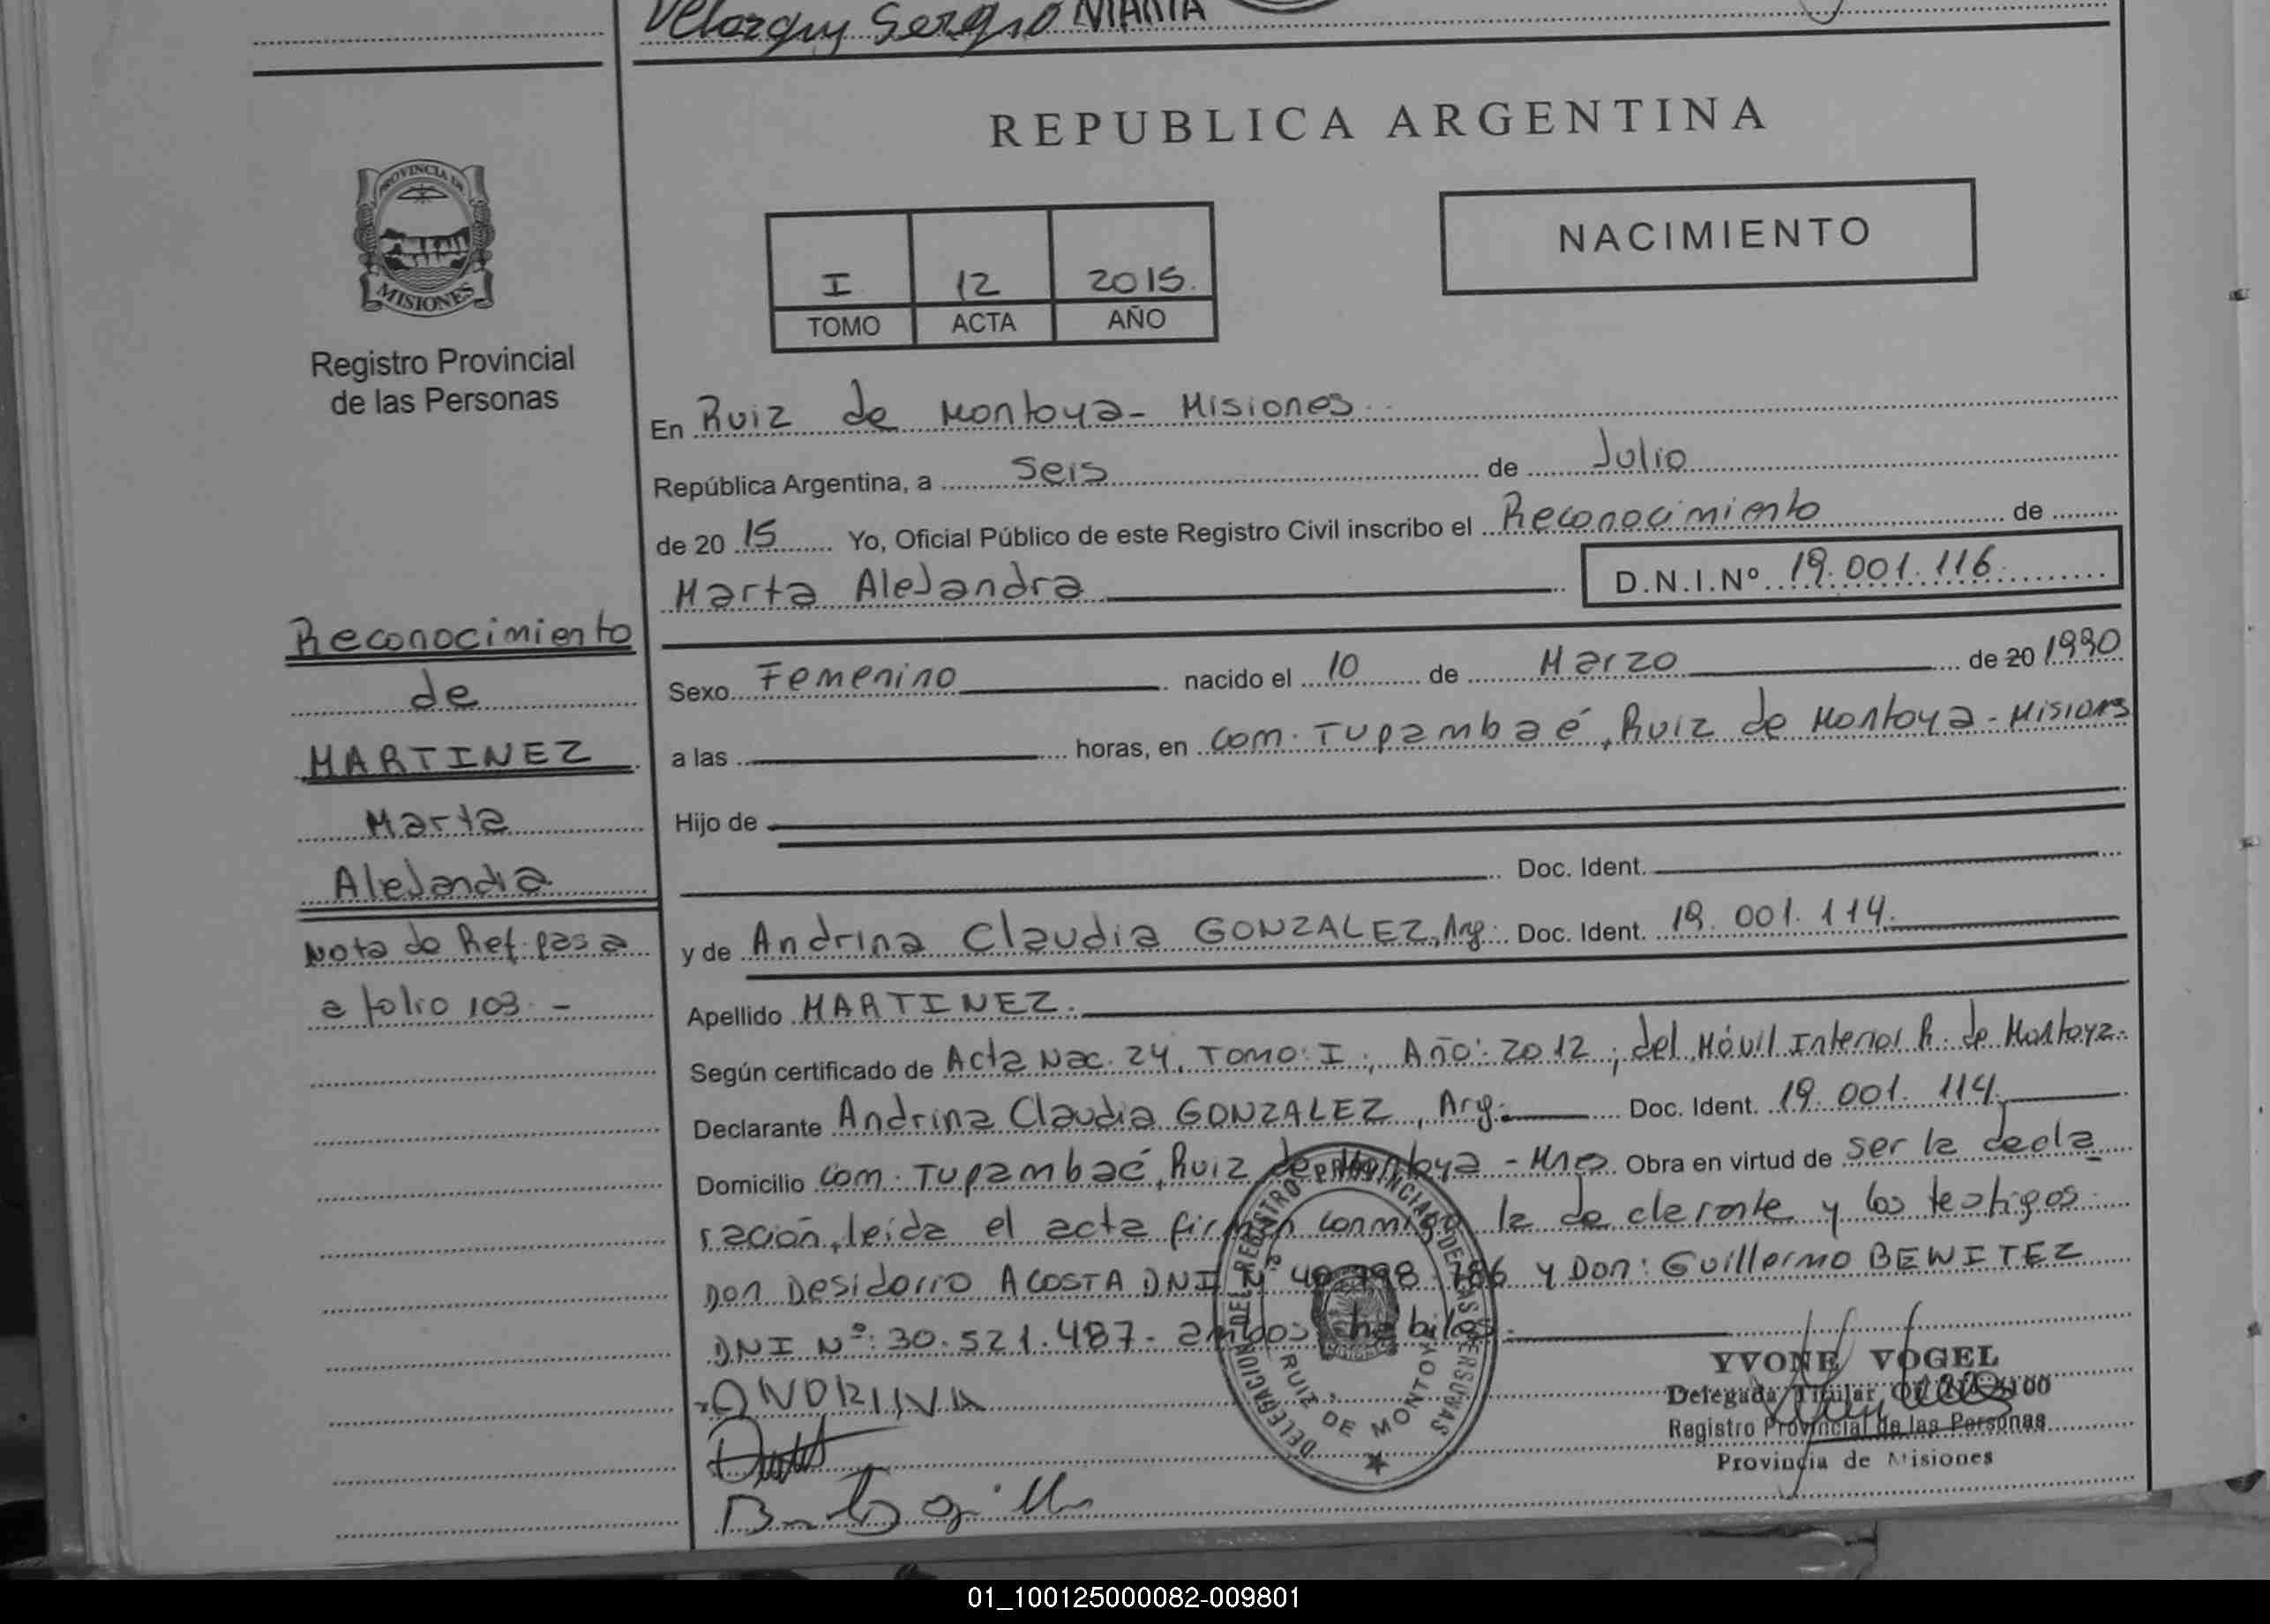 Sergio MARIA
REPUBLICA ARGENTINA
PROVINCIA DE
MISIONES
Registro Provincial
de las Personas
I 12 2015.
TOMO ACTA AÑO
NACIMIENTO
En Ruiz de Montoya- Misiones
República Argentina, a Seis de Julio
de 20 15 Yo, Oficial Público de este Registro Civil inscribo el Reconocimiento de
Marta Alejandra D.N.I.Nº 19.001.116
Sexo Femenino nacido el 10 de Marzo de 20 1990
a las horas, en Com. Tupambaé, Ruiz de Montoya - Misions
Hijo de
Doc. Ident.
y de Andrina Claudia GONZALEZ, Arg. Doc. Ident. 19.001.114.
Apellido MARTINEZ.
Según certificado de Acta Nac. 24, Tomo: I, Año: 2012, del Móvil Interior R. de Montoya.
Declarante Andrina Claudia GONZALEZ, Arg. Doc. Ident. 19.001.114,
Domicilio Com. Tupambaé, Ruiz de Montoya - Mnes Obra en virtud de ser la decla
ración, leida el acta firman conmigo la declarante y los testigos
Don Desidorio ACOSTA DNI Nº 40.798.786 y Don: Guillermo BENITEZ
DNI Nº: 30.521.487- ambos habiles.
Reconocimiento
de
MARTINEZ
Marta
Alejandra
Nota de Ref. pasa
a folio 103. -
ANDRINA
DELEGACION DEL REGISTRO PROVINCIAL DE LAS PERSONAS
RUIZ DE MONTOYA
YVONE VOGEL
Delegada Titular
Registro Provincial de las Personas
Provincia de Misiones
01_100125000082-009801